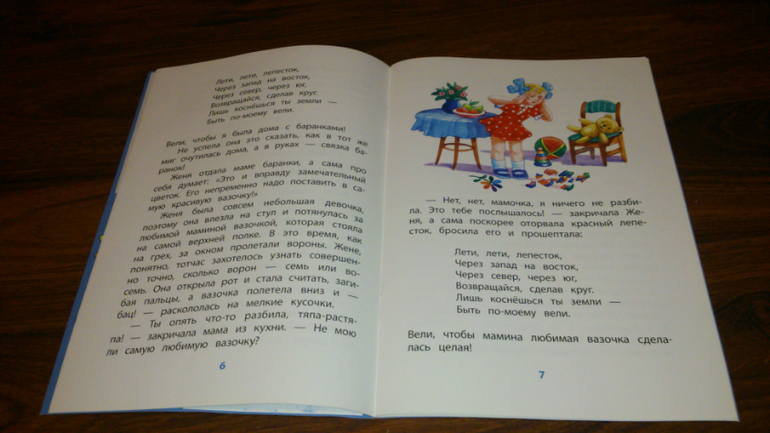 Лети, лети, лепесток,
Через запад на восток,
Через север, через юг,
Возвращайся, сделав круг.
Лишь коснёшься ты земли —
Быть по-моему вели.
Вели, чтобы я была дома с баранками!
Не успела она это сказать, как в тот же
миг очутилась дома, а в руках — связка ба-
ранок!
Женя отдала маме баранки, а сама про
себя думает: «Это и вправду замечательный
цветок. Его непременно надо поставить в са-
мую красивую вазочку!»
Женя была совсем небольшая девочка,
поэтому она влезла на стул и потянулась за
любимой маминой вазочкой, которая стояла
на самой верхней полке. В это время, как
на грех, за окном пролетали вороны. Жене,
понятно, тотчас захотелось узнать совершен-
но точно, сколько ворон — семь или во-
семь. Она открыла рот и стала считать, заги-
бая пальцы, а вазочка полетела вниз и —
бац! — раскололась на мелкие кусочки.
— Ты опять что-то разбила, тяпа-растя-
па! — закричала мама из кухни. — Не мою
ли самую любимую вазочку?
6
— Нет, нет, мамочка, я ничего не разби-
ла. Это тебе послышалось! — закричала Же-
ня, а сама поскорее оторвала красный лепе-
сток, бросила его и прошептала:
Лети, лети, лепесток,
Через запад на восток,
Через север, через юг,
Возвращайся, сделав круг.
Лишь коснёшься ты земли —
Быть по-моему вели.
Вели, чтобы мамина любимая вазочка сдела-
лась целая!
7